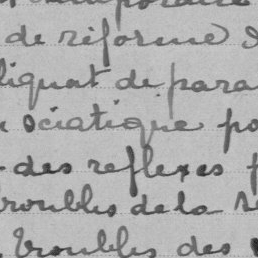 de réforme
liquat de para
sciatique po
des reflexes
troubles de la
troubles des